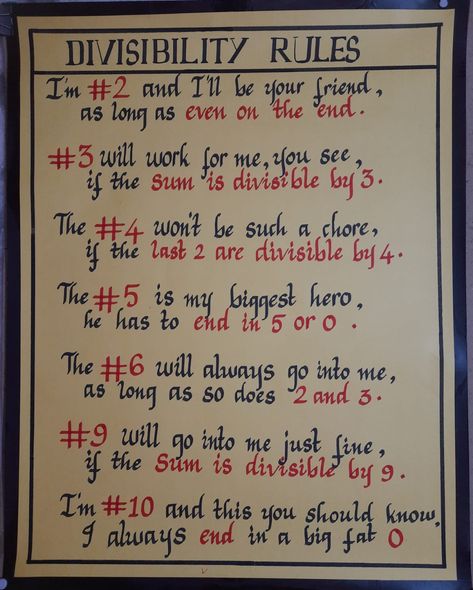 DIVISIBILITY RULES
I'm #2 and I'll be your friend,
as long as even on the end.
#3 will work for me, you see,
if the Sum is divisible by 3.
The #4 won't be such a chore,
if the last 2 are divisible by 4.
The #5 is my biggest hero,
he has to end in 5 or 0.
The #6 will always go into me,
as long as so does 2 and 3.
#9 will go into me just fine,
if the Sum is divisible by 9.
I'm #10 and this you should know,
I always end in a big fat 0